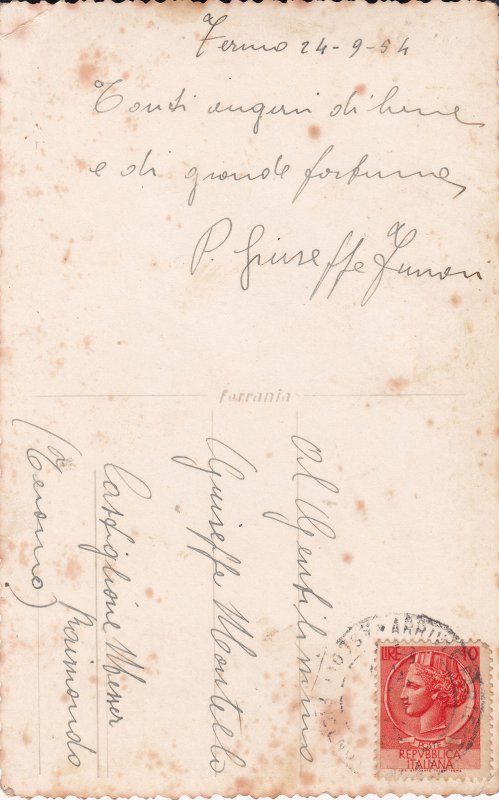 Fermo 24-9-54
Tanti auguri di bene
e di grande fortuna,
P. Giuseppe
ferrania
Al Gentilissimo
Giuseppe Montello
Castiglione Messer
Raimondo
(Teramo)
LIRE 10
POSTE
REPVBBLICA
ITALIANA